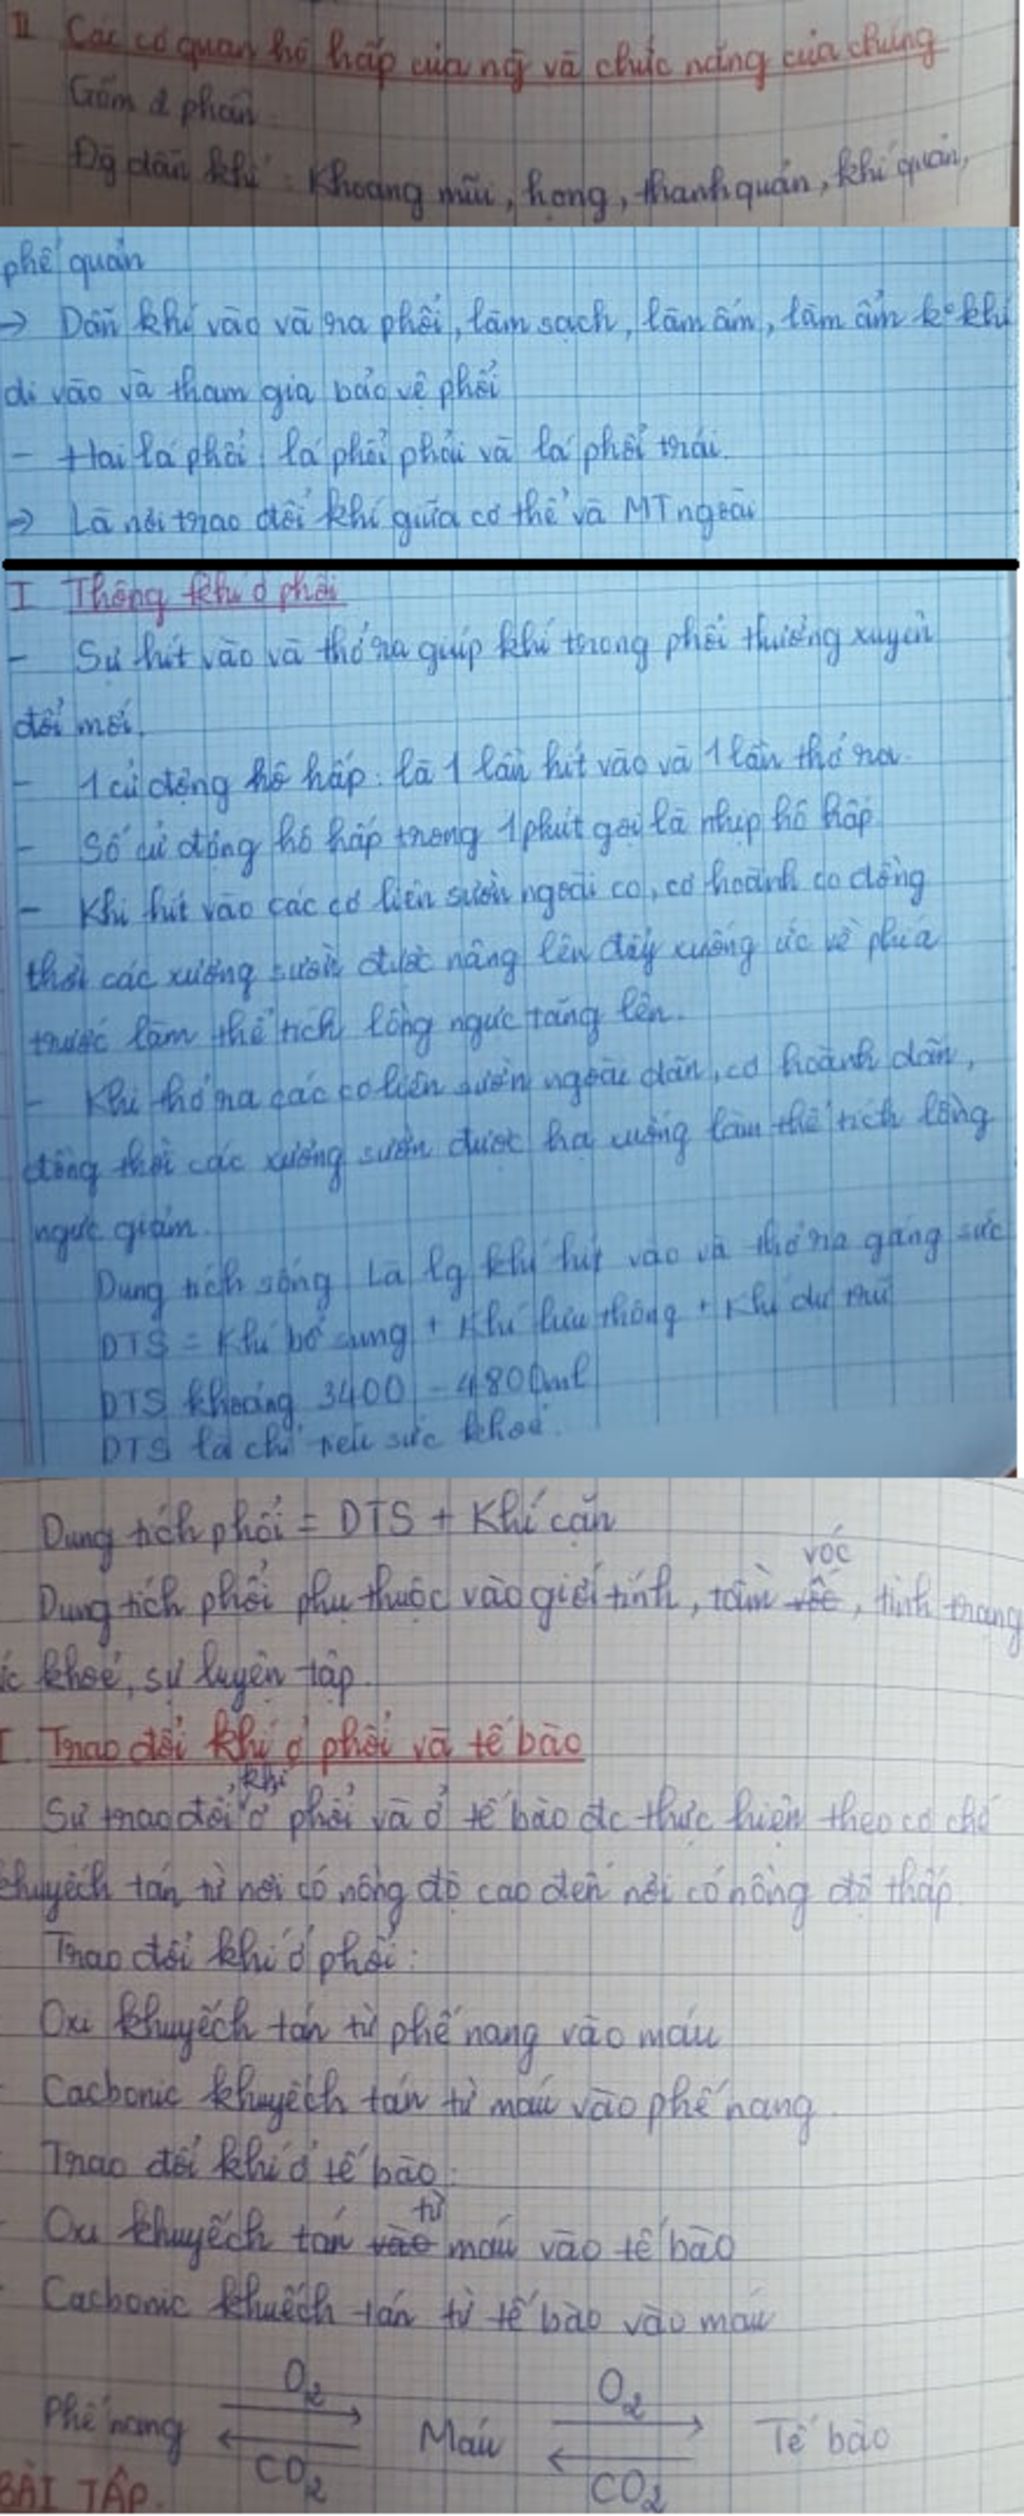 II Các cơ quan hô hấp của ng và chức năng của chúng
Gồm 2 phần
- Đg dẫn khí : Khoang mũi, họng, thanh quản, khí quản,
phế quản
→ Dẫn khí vào và ra phổi, làm sạch, làm ấm, làm ẩm k° khí
đi vào và tham gia bảo vệ phổi
- Hai lá phổi : lá phổi phải và lá phổi trái.
→ Là nơi trao đổi khí giữa cơ thể và MT ngoài
I Thông khí ở phổi
- Sự hít vào và thở ra giúp khí trong phổi thường xuyên
đổi mới.
- 1 cử động hô hấp : là 1 lần hít vào và 1 lần thở ra.
- Số cử động hô hấp trong 1 phút gọi là nhịp hô hấp
- Khi hít vào các cơ liên sườn ngoài co, cơ hoành co đồng
thời các xương sườn được nâng lên đẩy xương ức về phía
trước làm thể tích lồng ngực tăng lên.
- Khi thở ra các cơ liên sườn ngoài dãn, cơ hoành dãn,
đồng thời các xương sườn được hạ xuống làm thể tích lồng
ngực giảm.
Dung tích sống là lg khí hít vào và thở ra gắng sức
DTS = Khí bổ sung + Khí lưu thông + Khí dự trữ
DTS khoảng 3400 - 4800ml
DTS là chỉ tiêu sức khoẻ.
Dung tích phổi = DTS + Khí cặn
vóc
Dung tích phổi phụ thuộc vào giới tính, tầm , tình trạng
ức khoẻ, sự luyện tập.
I. Trao đổi khí ở phổi và tế bào
khí
Sự trao đổi ở phổi và ở tế bào đc thực hiện theo cơ chế
khuyếch tán từ nơi có nồng độ cao đến nơi có nồng độ thấp.
Trao đổi khí ở phổi :
Oxi khuyếch tán từ phế nang vào máu
Cacbonic khuyếch tán từ máu vào phế nang.
Trao đổi khí ở tế bào :
từ
Oxi khuyếch tán vào máu vào tế bào
Cacbonic khuếch tán từ tế bào vào máu
O2 O2
Phế nang Máu Tế bào
CO2 CO2
BÀI TẬP.